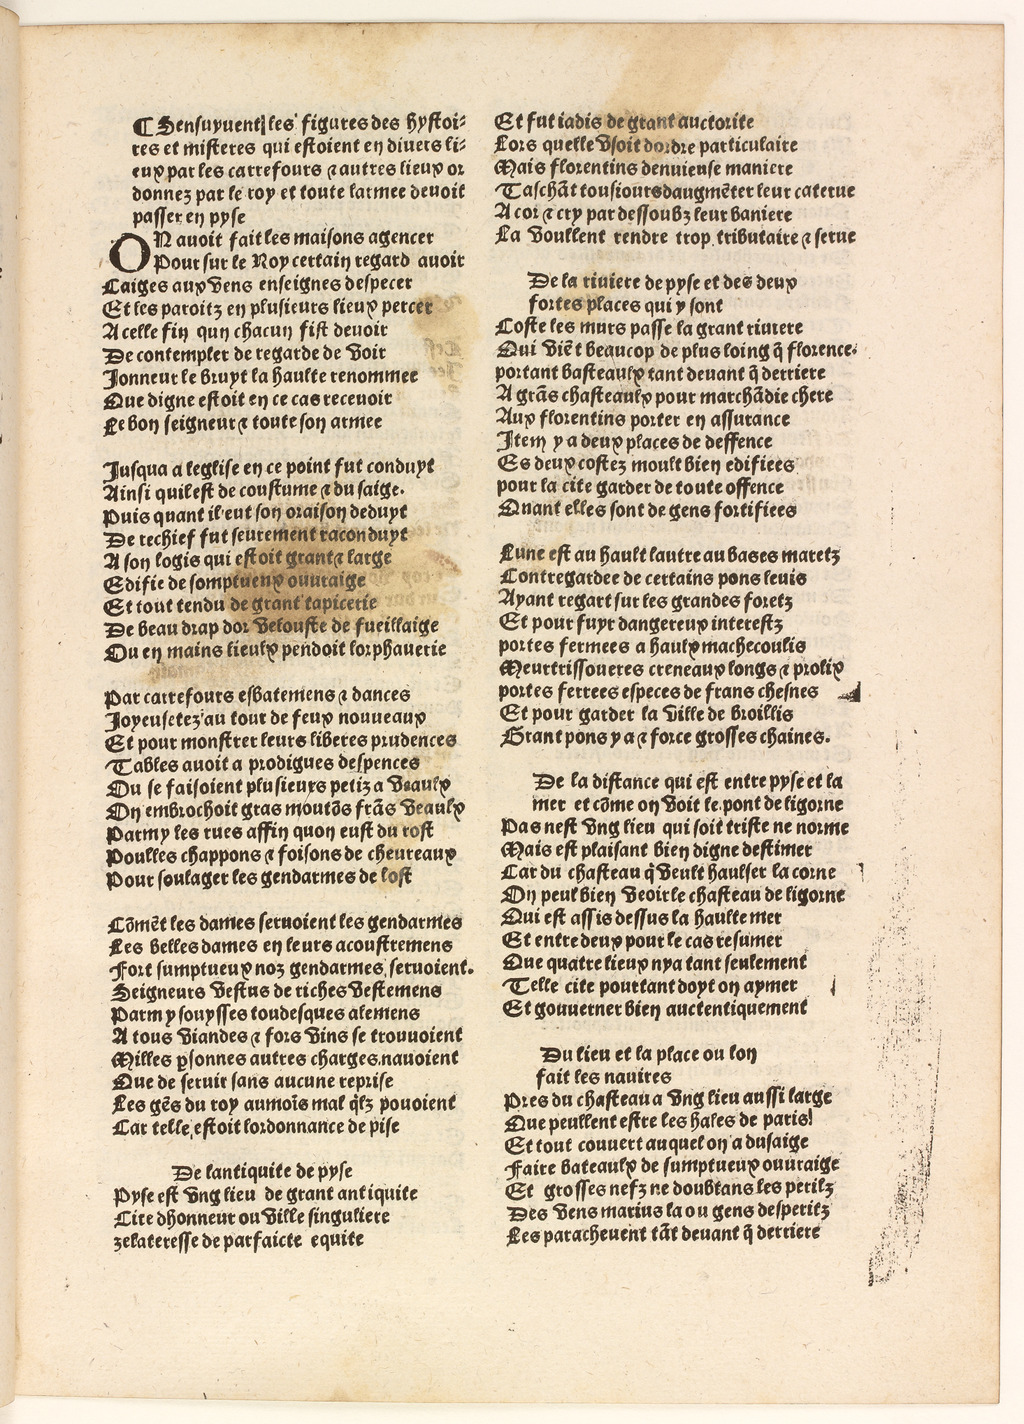 ¶ Sensuyuent les figures des hystoi-
res et misteres qui estoient en diuers li-
eux par les carrefours ⁊ autres lieux or
donnez par le roy et toute larmee deuoit
passer en pyse
ON auoit fait les maisons agencer
Pour sur le Roy certain regard auoir
Caiges aux vens enseignes despecer
Et les paroitz en plusieurs lieux percer
A celle fin qun chacun fist deuoir
De contempler de regarde de voir
Jonneur le bruyt la haulte renommee
Que digne estoit en ce cas receuoir
Le bon seigneur ⁊ toute son armee
Jusqua a leglise en ce point fut conduyt
Ainsi quil est de coustume ⁊ du saige.
Puis quant il eut son oraison deduyt
De rechief fut seurement raconduyt
A son logis qui estoit grant ⁊ large
Edifie de somptueux ouuraige
Et tout tendu de grant tapicerie
De beau drap dor velouste de fueillaige
Ou en mains lieulx pendoit lorphauerie
Par carrefours esbatemens ⁊ dances
Joyeusetez au tour de feux nouueaux
Et pour monstrer leurs liberes prudences
Tables auoit a prodigues despences
Ou se faisoient plusieurs petiz a veaulx
On embrochoit gras moutōs frās veaulx
Parmy les rues affin quon eust du rost
Poulles chappons ⁊ foisons de cheureaux
Pour soulager les gendarmes de lost
Cōmēt les dames seruoient les gendarmes
Les belles dames en leurs acoustremens
Fort sumptueux noz gendarmes seruoient.
Seigneurs vestus de riches vestemens
Parmy souysses toudesques alemens
A tous viandes ⁊ fors vins se trouuoient
Milles ꝑsonnes autres charges nauoient
Que de seruir sans aucune reprise
Les gēs du roy aumoīs mal q̄lz pouoient
Car telle estoit lordonnance de pise
De lantiquite de pyse
Pyse est vng lieu de grant antiquite
Cite dhonneur ou ville singuliere
zelateresse de parfaicte equite
Et fut iadis de grant auctorite
Lors quelle vsoit dordre particulaire
Mais florentins denuieuse maniere
Taschāt tousiours daugmēter leur caterue
A cor ⁊ cry par dessoubz leur baniere
La voullent rendre trop tributaire ⁊ serue
De la riuiere de pyse et des deux
fortes places qui y sont
Coste les murs passe la grant riuiere
Qui viēt beaucop de plus loing q̄ florence.
portant basteaulx tant deuant q̄ derriere
A grās chasteaulx pour marchādie chere
Aux florentins porter en assurance
Item y a deux places de deffence
Es deux costez moult bien edifiees
pour la cite garder de toute offence
Quant elles sont de gens fortifiees
Lune est au hault lautre au bases maretz
Contregardee de certains pons leuis
Ayant regart sur les grandes foretz
Et pour fuyr dangereux interestz
portes fermees a haulx machecoulis
Meurtrissoueres creneaux longs ⁊ prolix
portes ferrees especes de frans chesnes
Et pour garder la ville de broillis
Grant pons y a ⁊ force grosses chaines.
De la distance qui est entre pyse et la
mer et cōme on voit le pont de ligorne
Pas nest vng lieu qui soit triste ne norme
Mais est plaisant bien digne destimer
Car du chasteau q̄ veult haulser la corne
On peut bien veoir le chasteau de ligorne
Qui est assis dessus la haulte mer
Et entre deux pour le cas resumer
Que quatre lieux nya tant seulement
Telle cite pourtant doyt on aymer
Et gouuerner bien auctentiquement
Du lieu et la place ou lon
fait les nauires
Pres du chasteau a vng lieu aussi large
Que peullent estre les hales de paris
Et tout couuert auquel on a dusaige
Faire bateaulx de sumptueux ouuraige
Et grosses nefz ne doubtans les perilz
Des vens marius la ou gens desperitz
Les paracheuent tāt deuant q̄ derriere